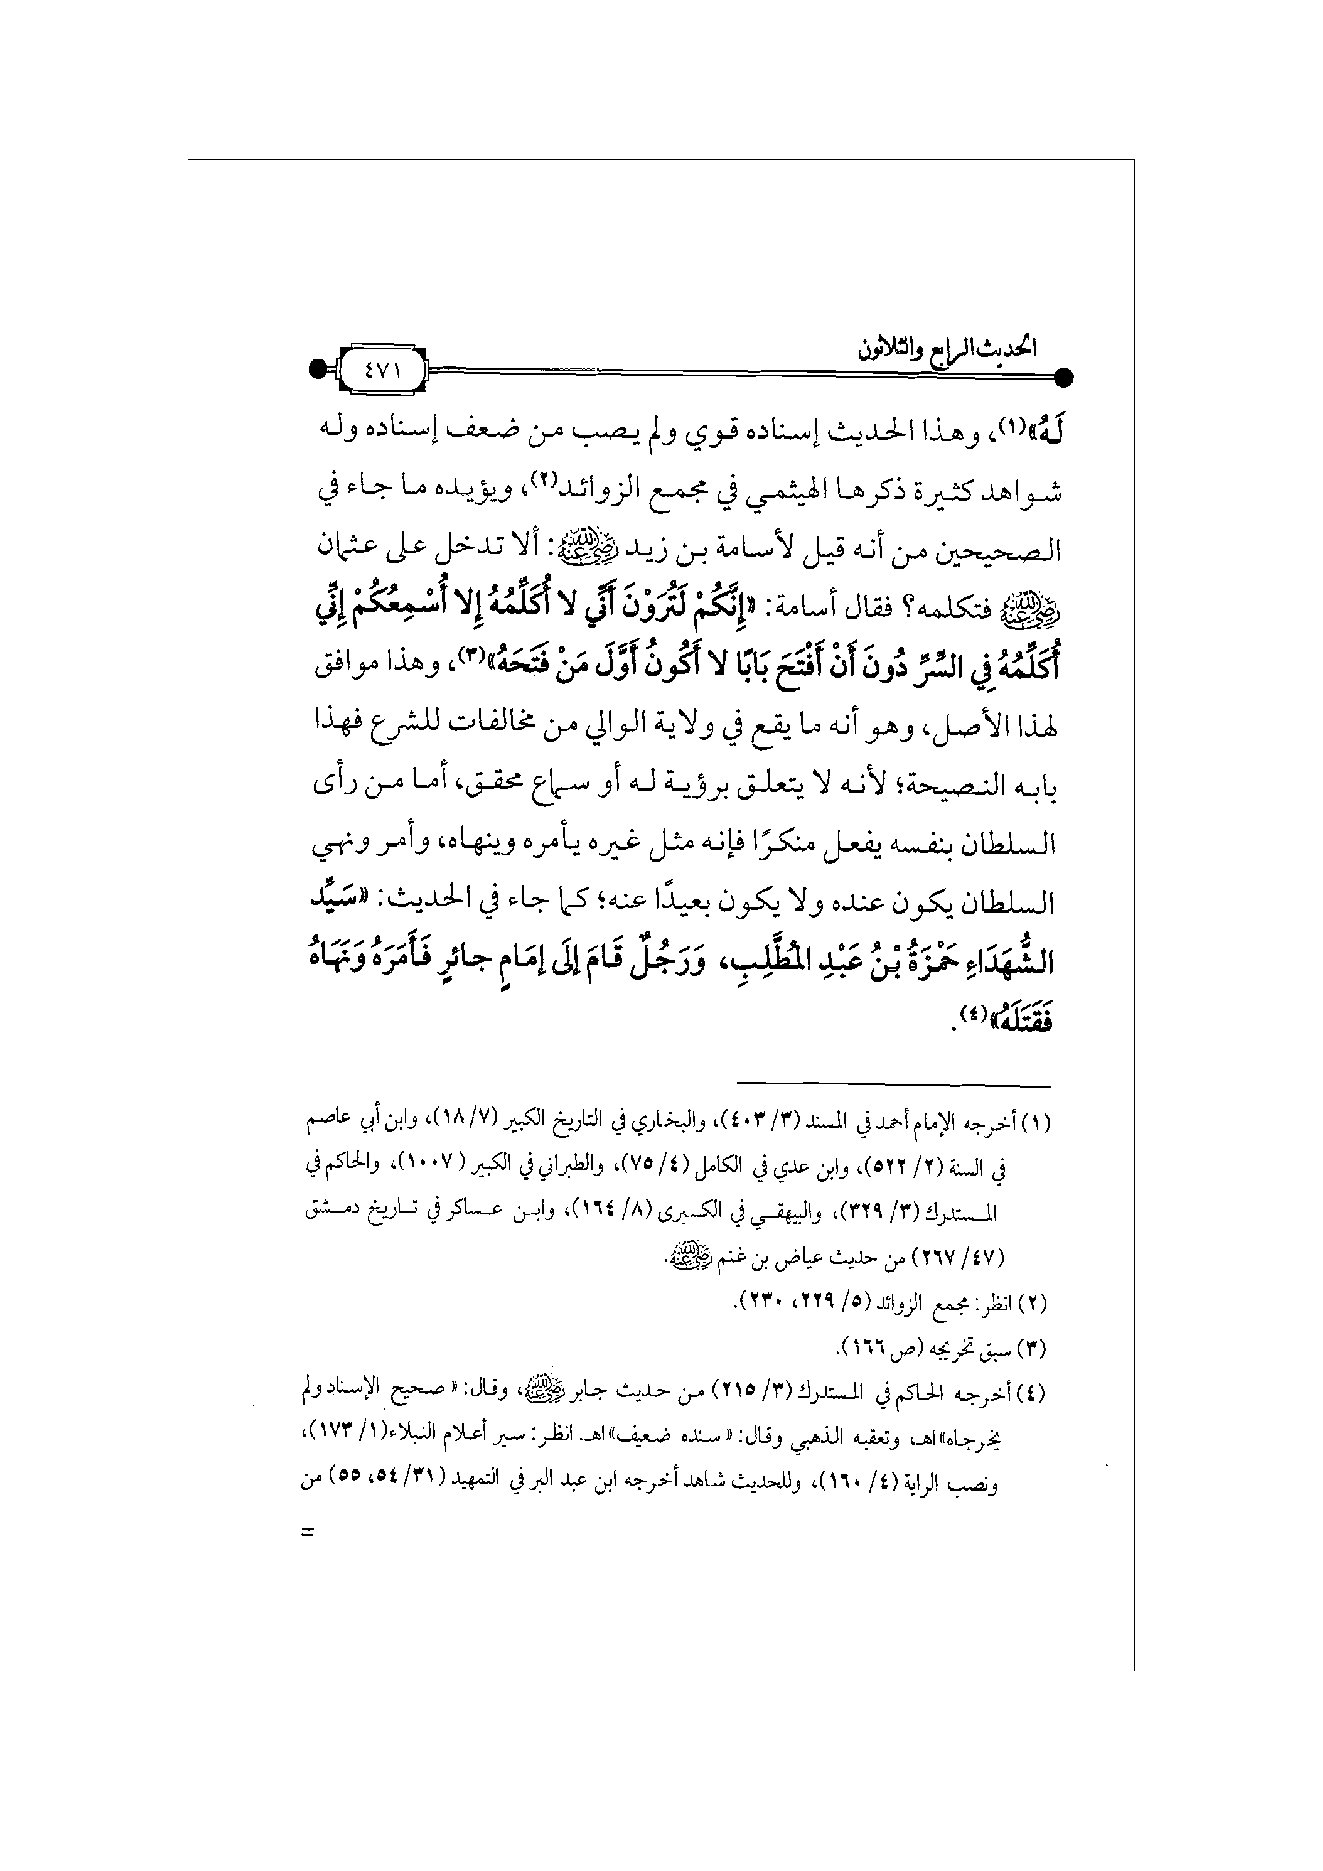 الحديث الرابع والثلاثون
٤٧١
لَهُ»(١)، وهذا الحديث إسناده قوي ولم يصب من ضعف إسناده وله
شواهد كثيرة ذكرها الهيثمي في مجمع الزوائد(٢)، ويؤيده ما جاء في
الصحيحين من أنه قيل لأسامة بن زيد رضي الله عنه: ألا تدخل على عثمان
رضي الله عنه فتكلمه؟ فقال أسامة: «إِنَّكُمْ لَتُرَوْنَ أَنِّي لا أُكَلِّمُهُ إِلا أُسْمِعُكُمْ إِنِّي
أُكَلِّمُهُ فِي السِّرِّ دُونَ أَنْ أَفْتَحَ بَابًا لا أَكُونُ أَوَّلَ مَنْ فَتَحَهُ»(٣)، وهذا موافق
لهذا الأصل، وهو أنه ما يقع في ولاية الوالي من مخالفات للشرع فهذا
بابه النصيحة؛ لأنه لا يتعلق برؤية له أو سماع محقق، أما من رأى
السلطان بنفسه يفعل منكرًا فإنه مثل غيره يأمره وينهاه، وأمر ونهي
السلطان يكون عنده ولا يكون بعيدًا عنه؛ كما جاء في الحديث: «سَيِّد
الشُّهَدَاءِ حَمْزَةُ بْنُ عَبْدِ المُطَّلِبِ، وَرَجُلٌ قَامَ إِلَى إِمَامٍ جائرٍ فَأَمَرَهُ وَنَهَاهُ
فَقَتَلَهُ»(٤).
(١) أخرجه الإمام أحمد في المسند (٣/ ٤٠٣)، والبخاري في التاريخ الكبير (٧/ ١٨)، وابن أبي عاصم
في السنة (٢/ ٥٢٢)، وابن عدي في الكامل (٤/ ٧٥)، والطبراني في الكبير (١٠٠٧)، والحاكم في
المستدرك (٣/ ٣٢٩)، والبيهقي في الكبرى (٨/ ١٦٤)، وابن عساكر في تاريخ دمشق
(٤٧/ ٢٦٧) من حديث عياض بن غنم رضي الله عنه.
(٢) انظر: مجمع الزوائد (٥/ ٢٢٩، ٢٣٠).
(٣) سبق تخريجه (ص ١٦٦).
(٤) أخرجه الحاكم في المستدرك (٣/ ٢١٥) من حديث جابر رضي الله عنه، وقال: «صحيح الإسناد ولم
يخرجاه» اهـ، وتعقبه الذهبي وقال: «سنده ضعيف» اهـ. انظر: سير أعلام النبلاء (١/ ١٧٣)،
ونصب الراية (٤/ ١٦٠)، وللحديث شاهد أخرجه ابن عبد البر في التمهيد (٣١/ ٥٤، ٥٥) من
=